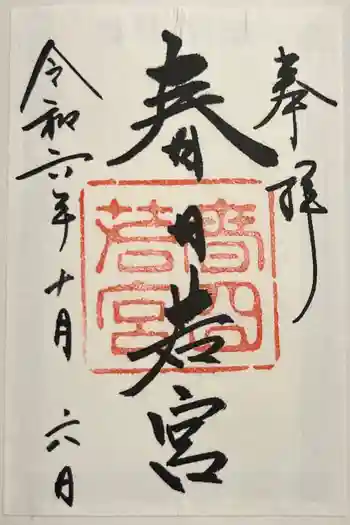 奉拝
春日若宮
春日
若宮
令和六年十月六日